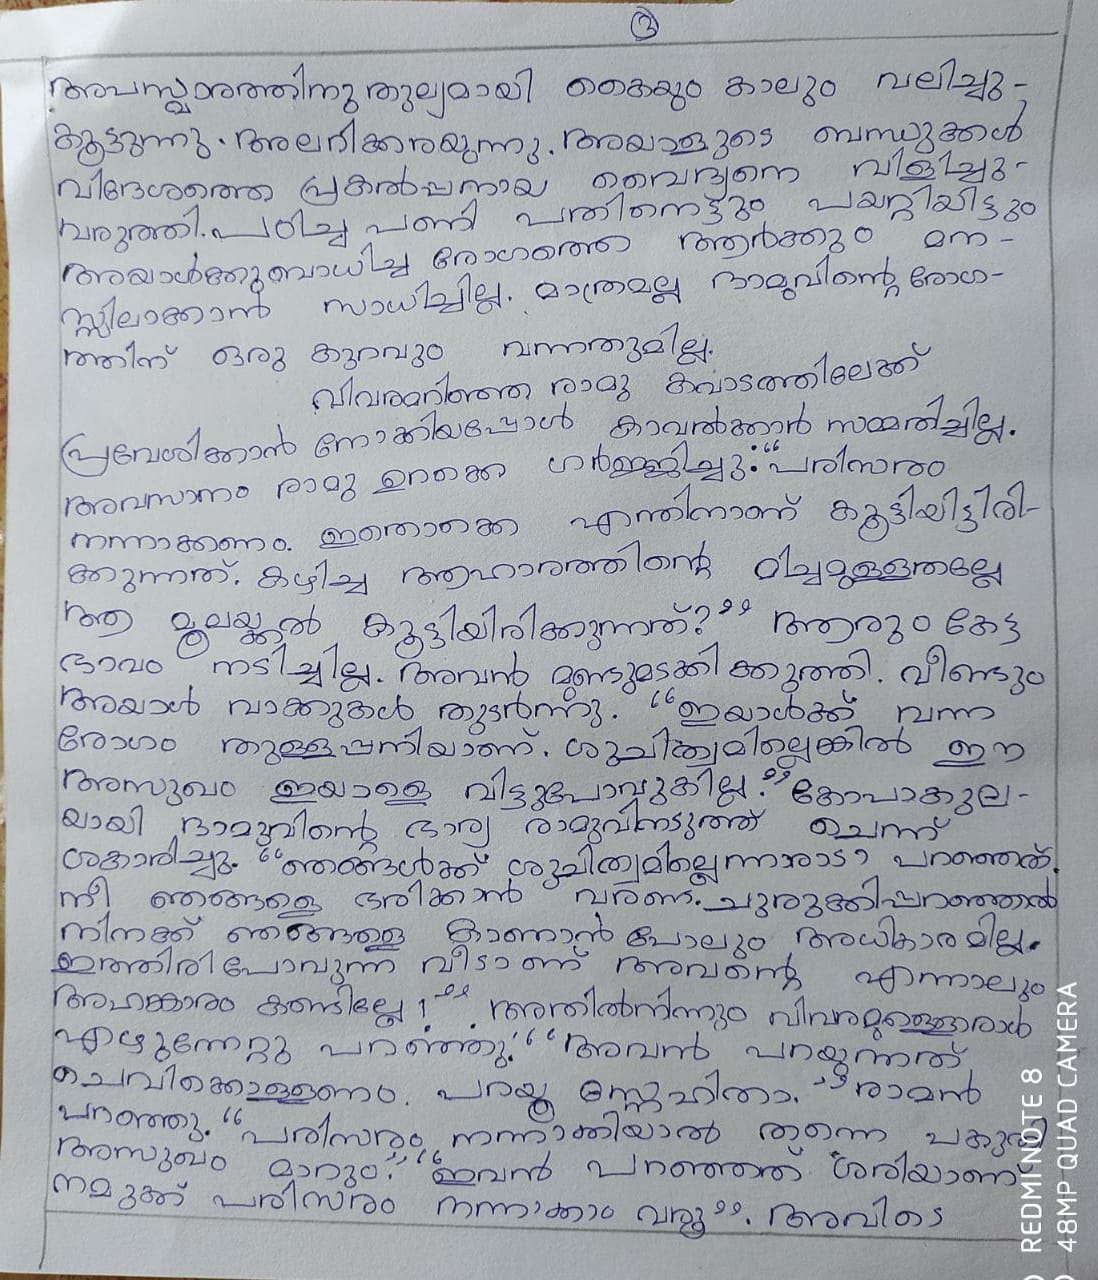 ③
അപസ്മാരത്തിനു തുല്യമായി കൈയും കാലും വലിച്ചു-
കൂട്ടുന്നു. അലറിക്കരയുന്നു. അയാളുടെ ബന്ധുക്കൾ
വിദേശത്തെ പ്രകൽപ്പനായ വൈദ്യനെ വിളിച്ചു-
വരുത്തി. പഠിച്ച പണി പതിനെട്ടും പയറ്റിയിട്ടും
അയാൾക്കുബാധിച്ച രോഗത്തെ ആർക്കും മന-
സ്സിലാക്കാൻ സാധിച്ചില്ല. മാത്രമല്ല ദാമുവിന്റെ രോഗ-
ത്തിന് ഒരു കുറവും വന്നതുമില്ല.
വിവരമറിഞ്ഞ രാമു കവാടത്തിലേക്ക്
പ്രവേശിക്കാൻ നോക്കിയപ്പോൾ കാവൽക്കാർ സമ്മതിച്ചില്ല.
അവസാനം രാമു ഉറക്കെ ഗർജ്ജിച്ചു: "പരിസരം
നന്നാക്കണം. ഇതൊക്കെ എന്തിനാണ് കൂട്ടിയിട്ടിരി-
ക്കുന്നത്. കഴിച്ച ആഹാരത്തിന്റെ മിച്ചമുള്ളതല്ലേ
ആ മൂലയ്ക്കൽ കൂട്ടിയിരിക്കുന്നത്?" ആരും കേട്ട
ഭാവം നടിച്ചില്ല. അവൻ മുണ്ടുമടക്കി ക്കുത്തി. വീണ്ടും
അയാൾ വാക്കുകൾ തുടർന്നു. "ഇയാൾക്ക് വന്ന
രോഗം തുള്ളപ്പനിയാണ്. ശുചിത്വമില്ലെങ്കിൽ ഈ
അസുഖം ഇയാളെ വിട്ടുപോവുകില്ല." കോപാകുല-
യായി ദാമുവിന്റെ ഭാര്യ രാമുവിനടുത്ത് ചെന്ന്
ശകാരിച്ചു. "ഞങ്ങൾക്ക് ശുചിത്വമില്ലെന്നാരാടാ പറഞ്ഞത്.
നീ ഞങ്ങളെ ഭരിക്കാൻ വരണ്ട. ചുരുക്കിപ്പറഞ്ഞാൽ
നിനക്ക് ഞങ്ങളെ കാണാൻ പോലും അധികാരമില്ല.
ഇത്തിരി പോവുന്ന വീടാണ് അവന്റെ എന്നാലും
അഹങ്കാരം കണ്ടില്ലേ!" അതിൽനിന്നും വിവരമുള്ളൊരാൾ
എഴുന്നേറ്റു പറഞ്ഞു: "അവൻ പറയുന്നത്
ചെവിക്കൊള്ളണം. പറയൂ സ്നേഹിതാ." രാമൻ
പറഞ്ഞു. "പരിസരം നന്നാക്കിയാൽ തന്നെ പകുതി
അസുഖം മാറും." "ഇവൻ പറഞ്ഞത് ശരിയാണ്
നമുക്ക് പരിസരം നന്നാക്കാം വരൂ". അവിടെ
REDMI NOTE 8
48MP QUAD CAMERA